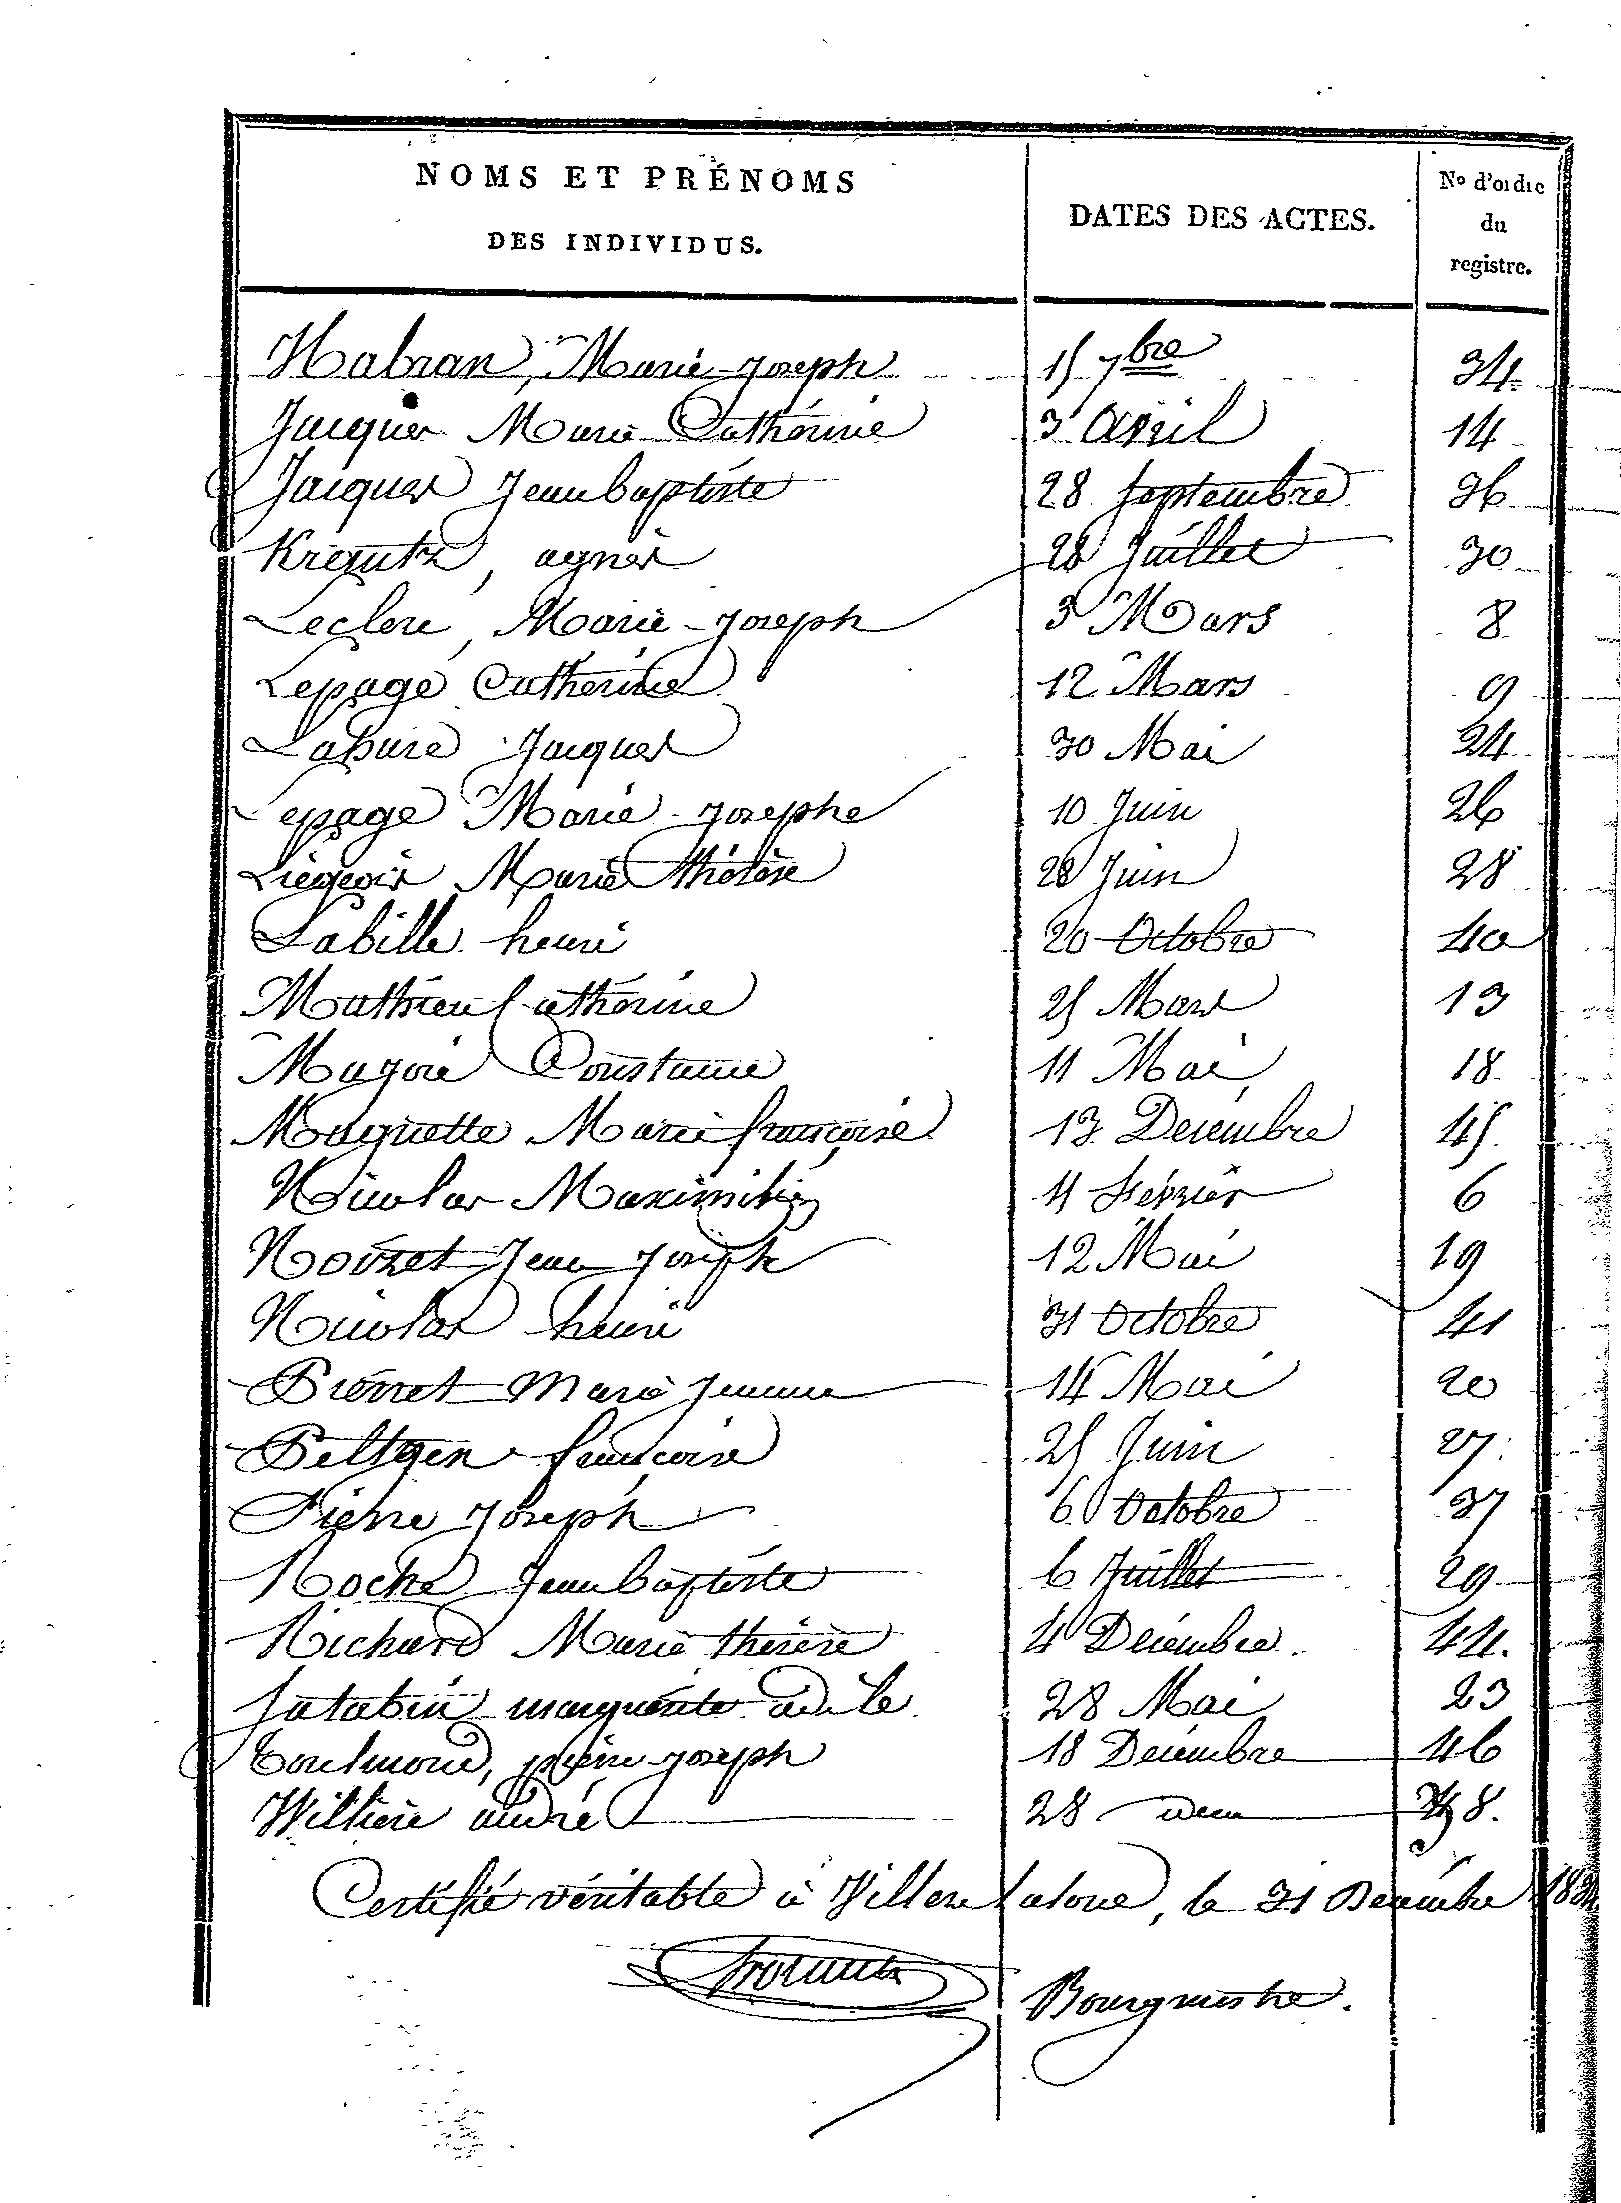 NOMS ET PRÉNOMS
DES INDIVIDUS.
DATES DES ACTES.
No d'ordre
du
registre.
Habran, Marie-Joseph 15 7bre 34.
Jacques Marie Cathérine 3 avril 14
Jacques Jean baptiste 28 septembre 36
Kreyutz, agnès 28 Juillet 30
Leclere, Marie-Joseph 3 Mars 8
Lepage Catherine 12 Mars 9
Lahure Jacques 30 Mai 24
Lepage Marie-Josephe 10 Juin 26
Liégeois Marie thérèse 28 Juin 28
Labille henri 20 Octobre 40
Mathieu Cathérine 25 Mars 13
Majoie Constance 11 Mai 18
Maquette Marie françoise 13 Decembre 45.
Nicolas Maximilien 11 Février 6
Noizet Jean Joseph 12 Mai 19
Nicolas henri 31 Octobre 41
Pierret Marie Jeanne 14 Mai 20
Peltgen françoise 25 Juin 27
Pierre Joseph 6 Octobre 37
Roche Jean baptiste 6 Juillet 29
Richard Marie thérèse 4 Décembre 44.
marguerite adèle 28 Mai 23
Toulmond, pierre-joseph 18 Décembre 46
Willière andré 28 idem 48.
Certifié véritable à Villers Latoue, le 31 Décembre
Bourgmestre.